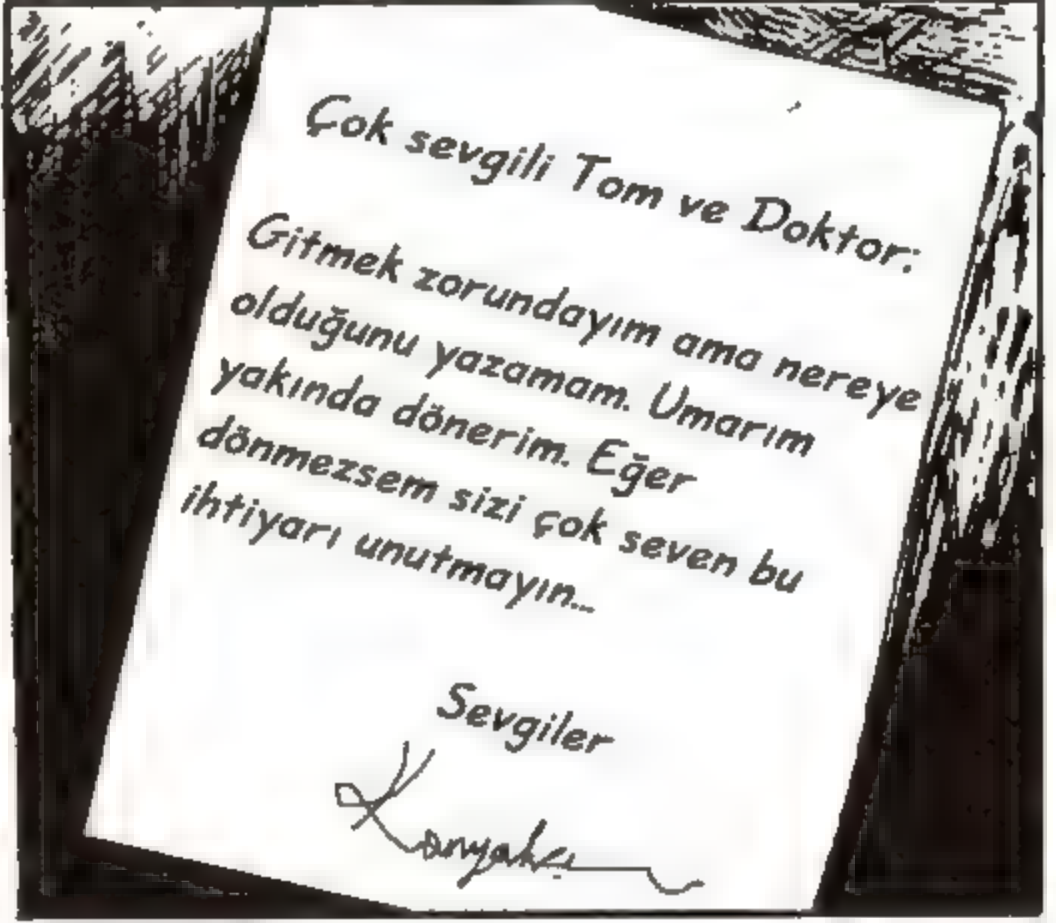 Çok sevgili Tom ve Doktor:
Gitmek zorundayım ama nereye
olduğunu yazamam. Umarım
yakında dönerim. Eğer
dönmezsem sizi çok seven bu
ihtiyarı unutmayın...
Sevgiler
Konyakçı